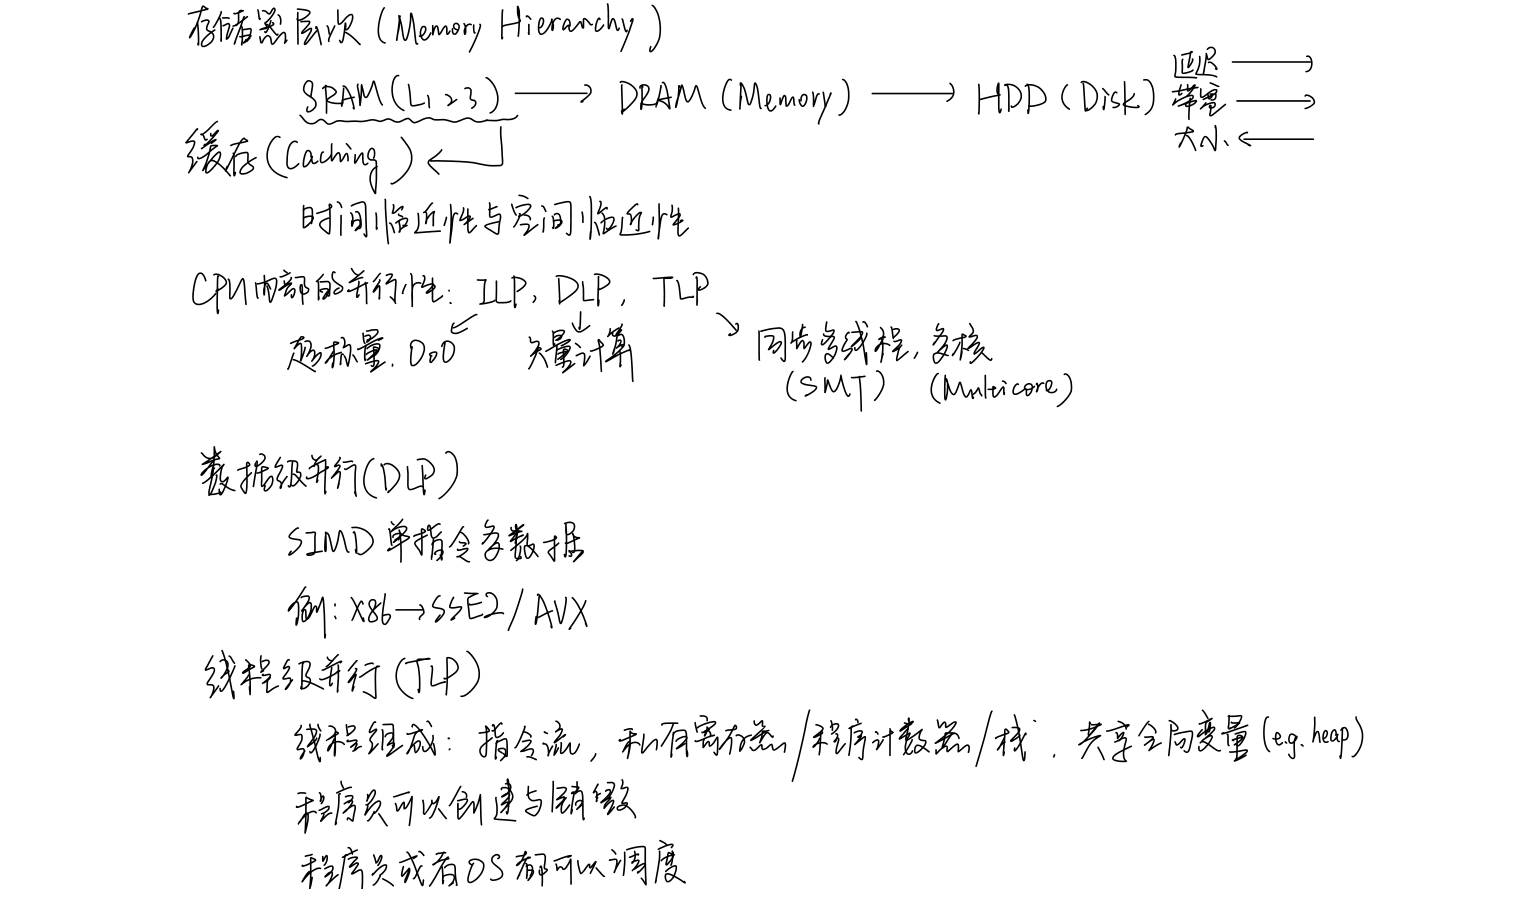 存储器层次 (Memory Hierarchy)
SRAM (L1 2 3) → DRAM (Memory) → HDD (Disk) 延迟 →
带宽 →
大小 ←
缓存 (Caching) ←
时间临近性与空间临近性
CPU内部的并行性: ILP, DLP, TLP
超标量, OoO 矢量计算 同步多线程, 多核
(SMT) (Multicore)
数据级并行 (DLP)
SIMD 单指令多数据
例: X86→SSE2/AVX
线程级并行 (TLP)
线程组成: 指令流, 私有寄存器/程序计数器/栈, 共享全局变量 (e.g. heap)
程序员可以创建与销毁
程序员或者OS都可以调度